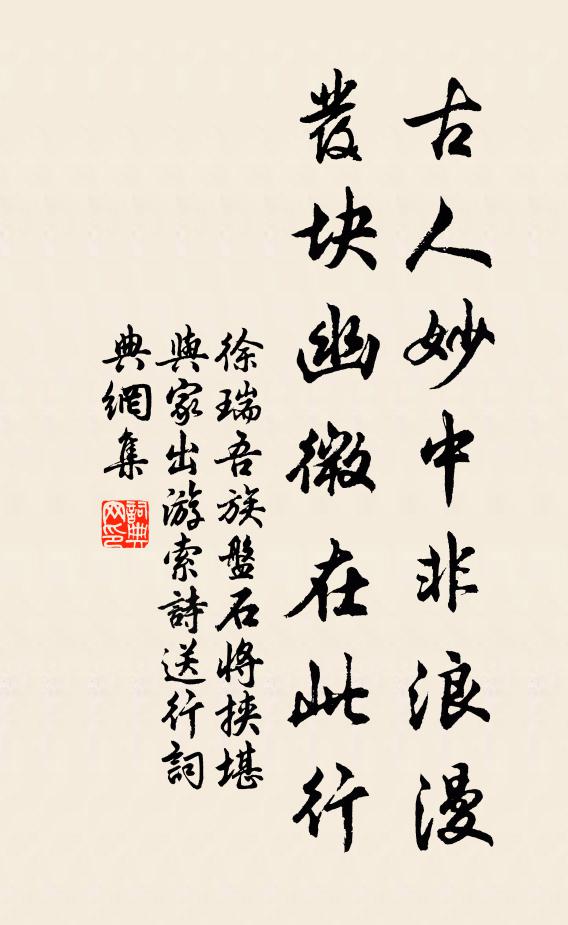 古人妙中非浪漫
發块幽微在此行
徐瑞吾族盤石將挾堪
與家出游索詩送行詞
典網集
詞典网印